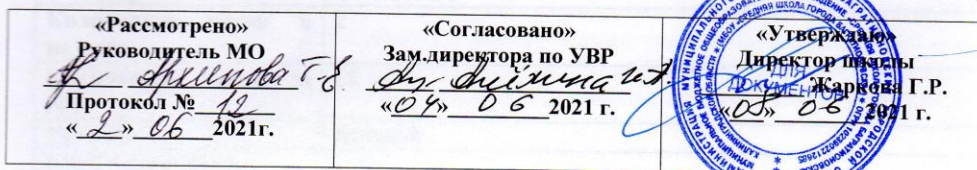 «Рассмотрено»
Руководитель МО
Архипова Т.Е.
Протокол № 12
«2» 06 2021г.
«Согласовано»
Зам.директора по УВР
«04» 06 2021 г.
«Утверждаю»
Директор школы
Жаркова Г.Р.
«08» 06 2021 г.
ДЛЯ
ДОКУМЕНТОВ